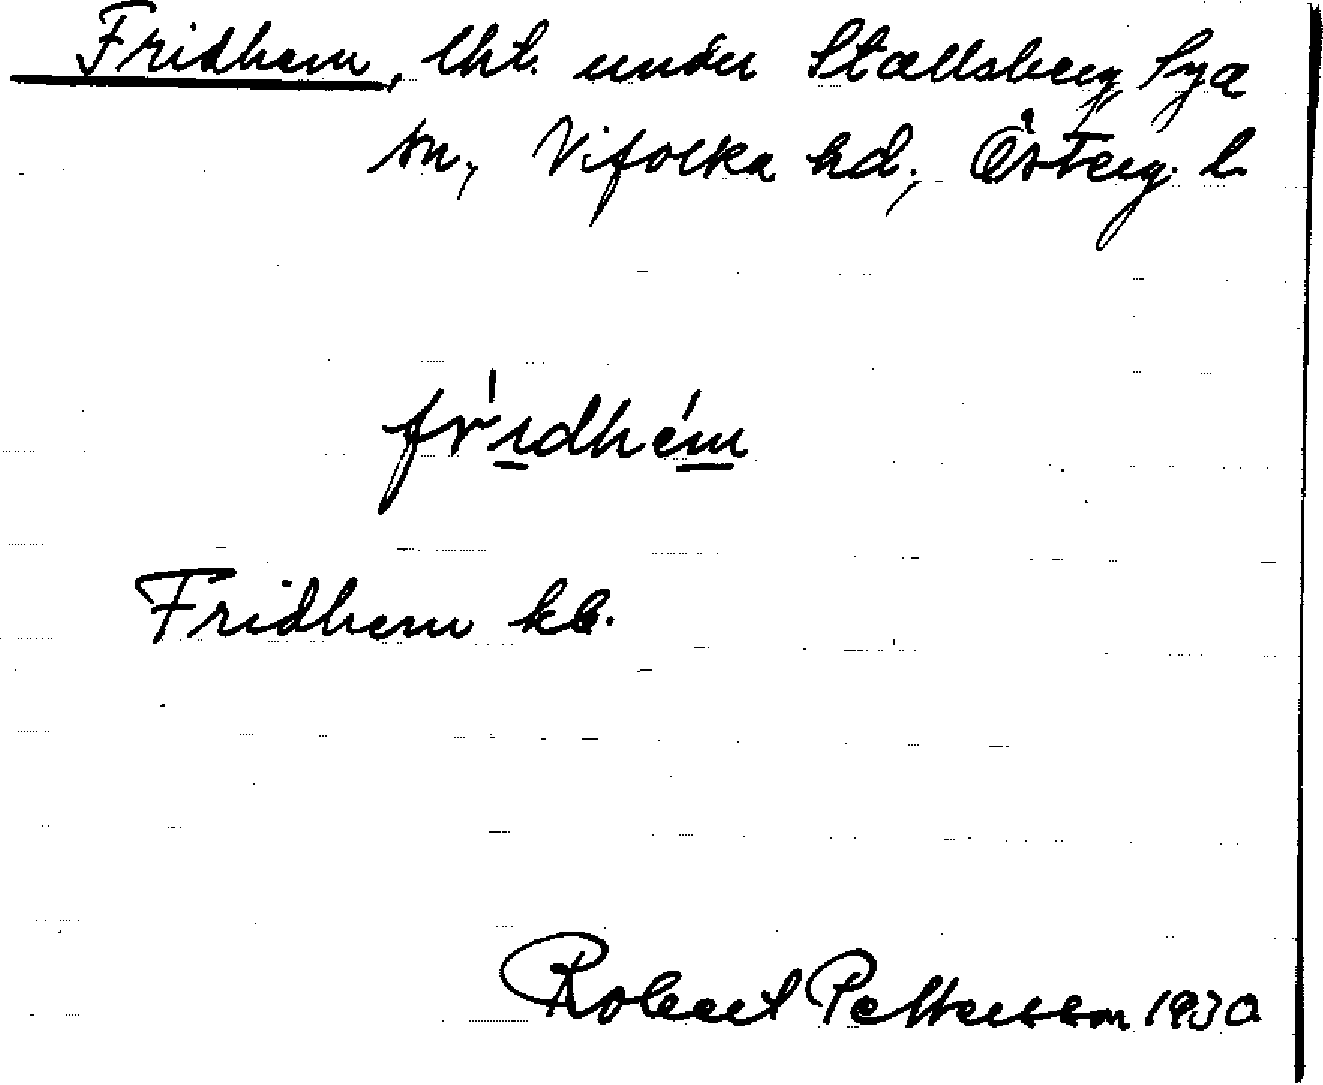 Fridhem, lht. under Stallsberg Sya
sn, Vifolka hd, Österg. l.
fri̱dhém̱
Fridhem kb.
Robert Pettersson 1930